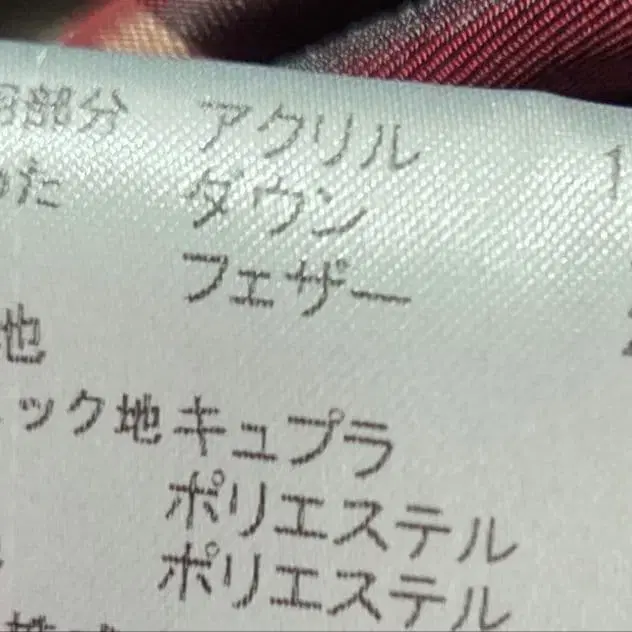 部分 アクリル 1
わた ダウン
フェザー
地
ック地 キュプラ
ポリエステル
ポリエステル